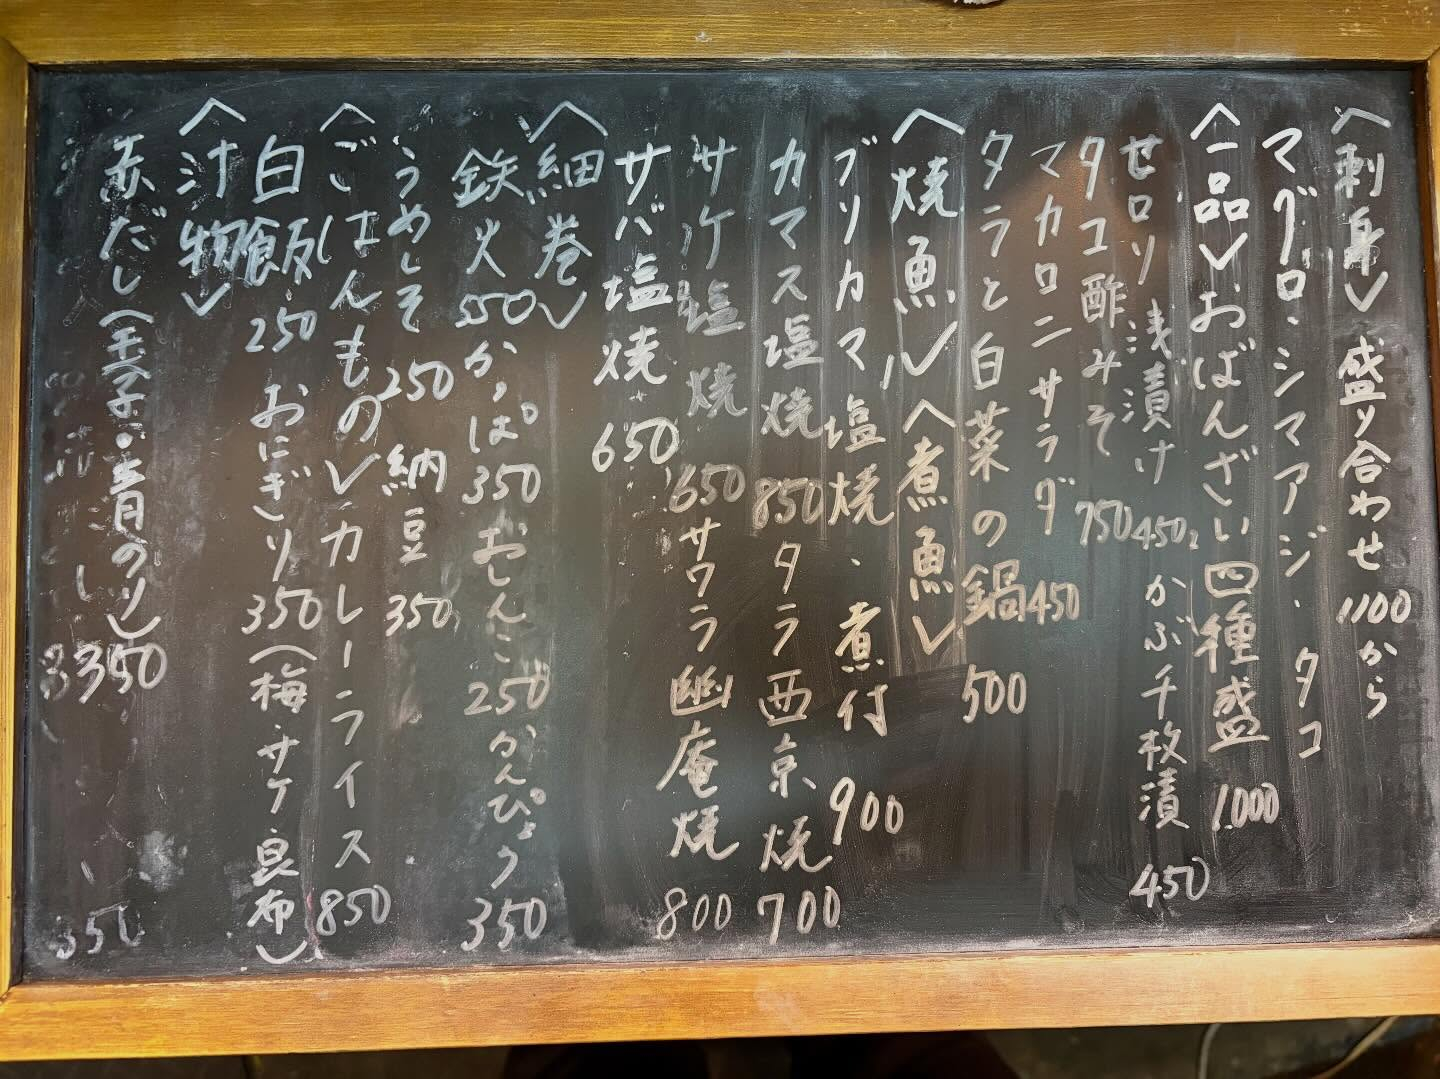 〈刺身〉盛り合わせ 1100から
マグロ・シマアジ・タコ
〈一品〉おばんざい四種盛 1000
セロリ浅漬け 450、かぶ千枚漬 450
タコ酢みそ 750
マカロニサラダ 450
タラと白菜の鍋 500
〈焼魚〉〈煮魚〉
ブリカマ塩焼、煮付 900
カマス塩焼 850 タラ西京焼 700
サケ塩焼 650 サワラ幽庵焼 800
サバ塩焼 650
〈細巻〉
鉄火 550 かっぱ 350 おしんこ 250 かんぴょう 350
うめしそ 250 納豆 350
〈ごはんもの〉カレーライス 850
白飯 250 おにぎり 350(梅・サケ・昆布)
〈汁物〉
赤だし(玉子・青のり) 350
350